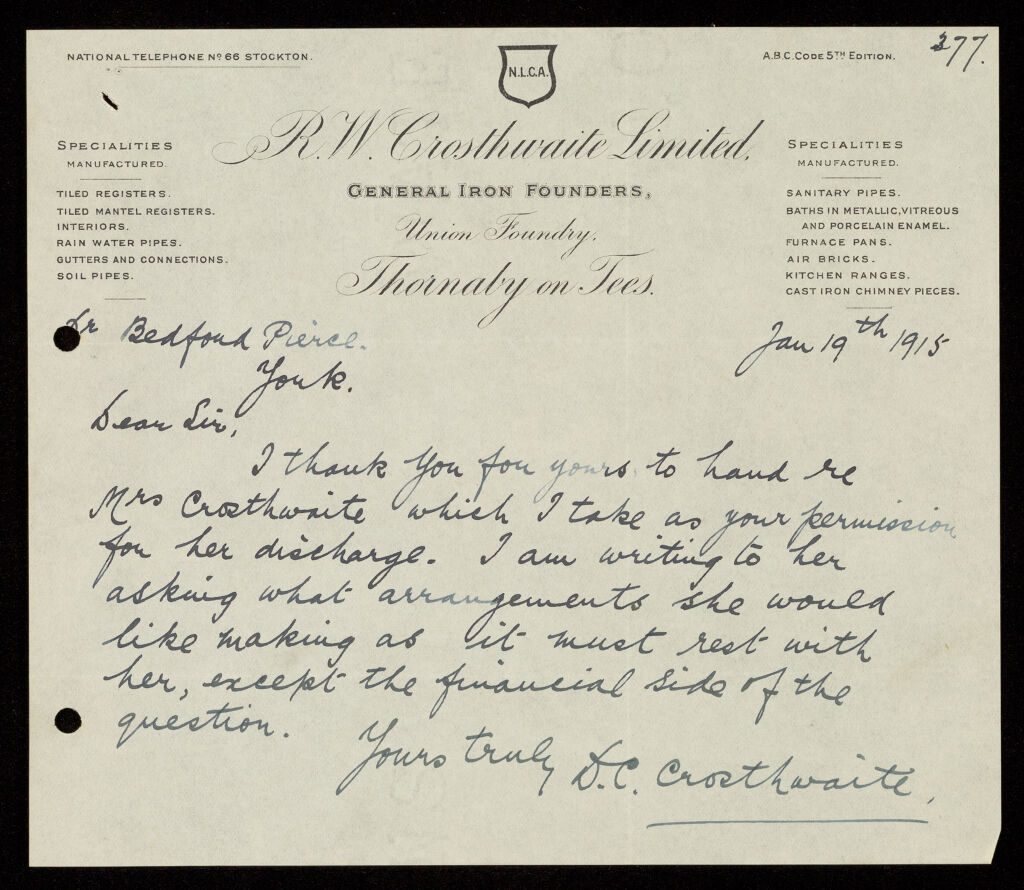 377.
NATIONAL TELEPHONE No 66 STOCKTON.
N.L.C.A.
A.B.C. CODE 5TH EDITION.
R.W. Crosthwaite Limited,
GENERAL IRON FOUNDERS,
Union Foundry,
Thornaby on Tees.
SPECIALITIES
MANUFACTURED.
TILED REGISTERS.
TILED MANTEL REGISTERS.
INTERIORS.
RAIN WATER PIPES.
GUTTERS AND CONNECTIONS.
SOIL PIPES.
SPECIALITIES
MANUFACTURED.
SANITARY PIPES.
BATHS IN METALLIC, VITREOUS
AND PORCELAIN ENAMEL.
FURNACE PANS.
AIR BRICKS.
KITCHEN RANGES.
CAST IRON CHIMNEY PIECES.
Jan 19th 1915
Dr Bedford Pierce.
York.
Dear Sir,
I thank you for yours to hand re
Mrs Crosthwaite which I take as your permission
for her discharge. I am writing to her
asking what arrangements she would
like making as it must rest with
her, except the financial side of the
question.
Yours truly D.C. Crosthwaite,